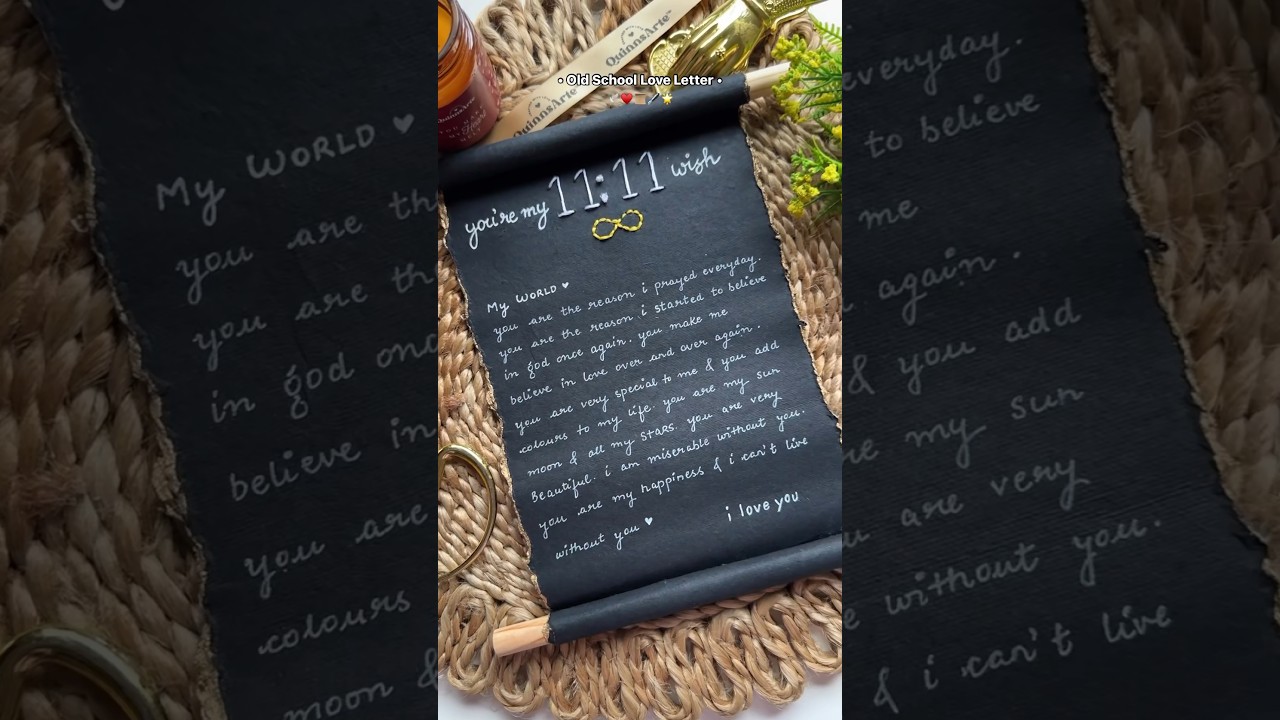 • Old School Love Letter •
QuinnsArte
QuinnsArte
you're my 11:11 wish
My WORLD ♥
you are the reason i prayed everyday.
you are the reason i started to believe
in god once again. you make me
believe in love over and over again.
you are very special to me & you add
colours to my life. you are my sun
moon & all my STARS. you are very
Beautiful. i am miserable without you.
you are my happiness & i can't live
without you ♥
i love you